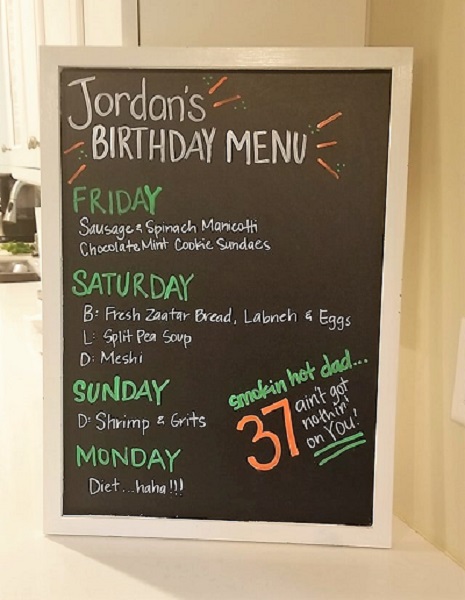 Jordan's
BIRTHDAY MENU
FRIDAY
Sausage & Spinach Manicotti
Chocolate Mint Cookie Sundaes
SATURDAY
B: Fresh Zaatar Bread, Labneh & Eggs
L: Split Pea Soup
D: Meshi
SUNDAY
D: Shrimp & Grits
MONDAY
Diet...haha!!!
smokin hot dad...
37 ain't got
nothin'
on YOU!